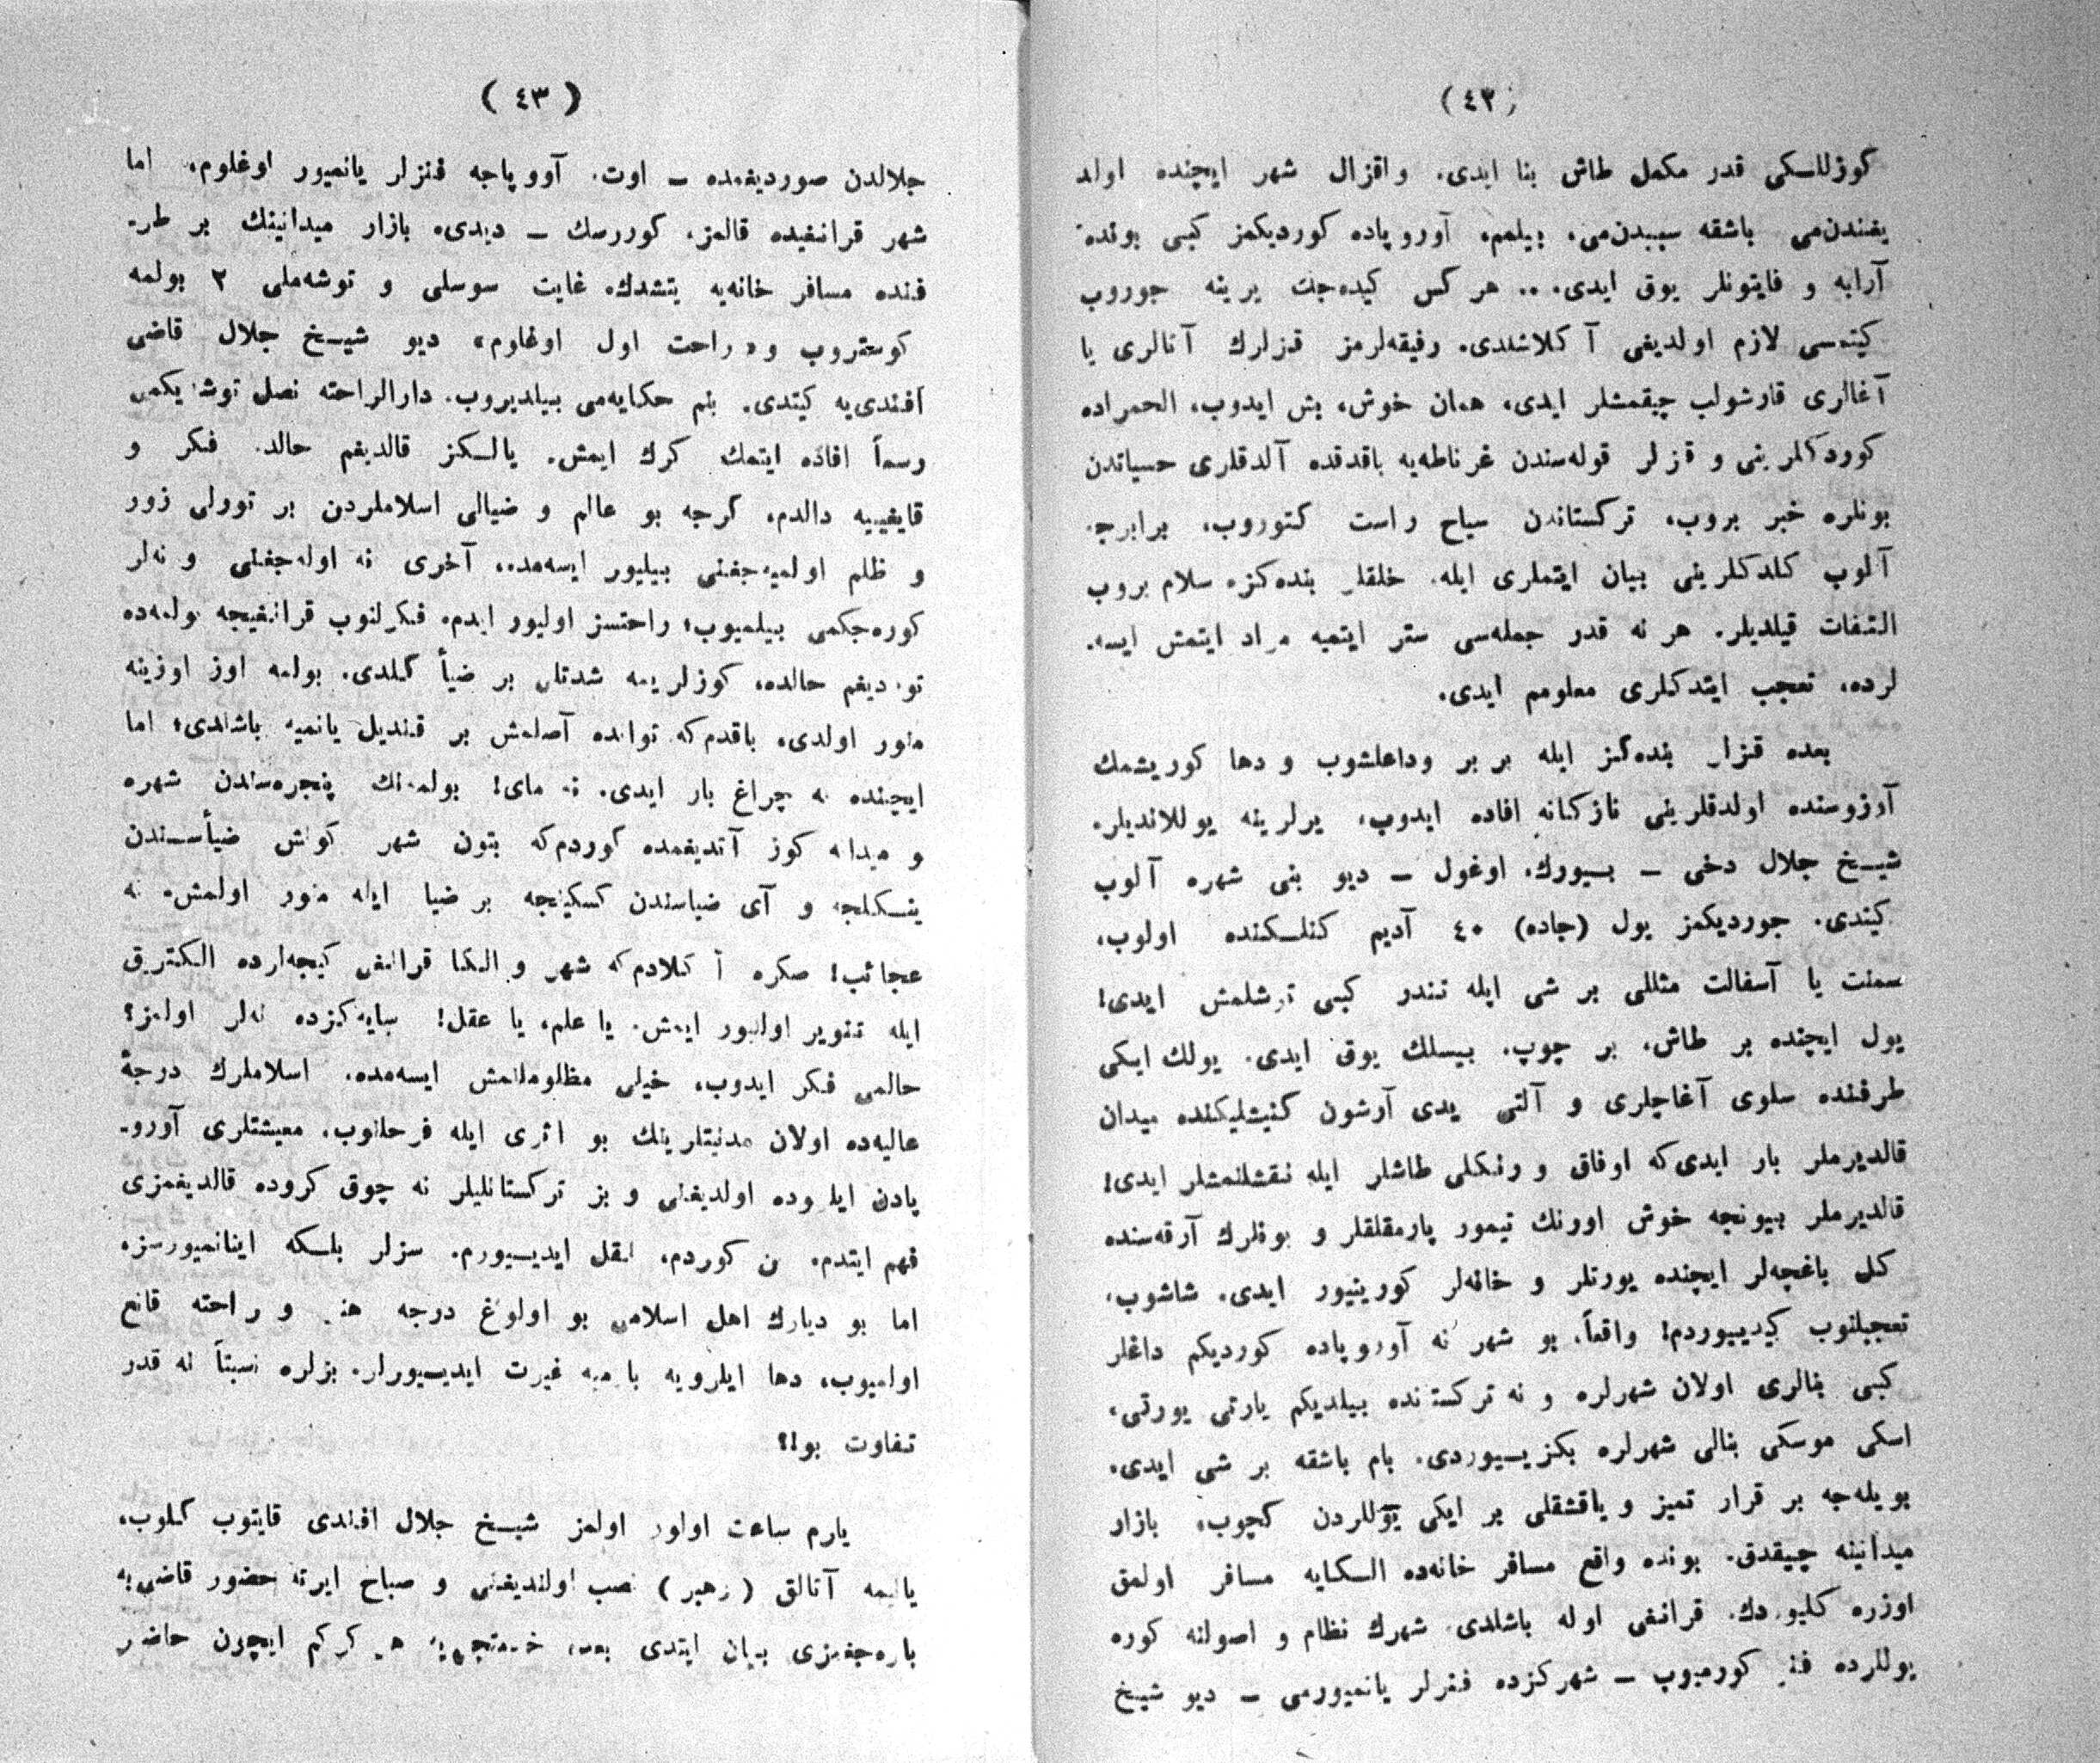 (٤٣)
كوزللسكى قدر مكمل طاش بنا ايدى. واقزال شهر ايچنده اولد
يغندن‌مى باشقه سببدن‌مى، بيلمم، آوروپاده كورديكمز كبى بونده
آرابه و فايتونلر يوق ايدى... هر كس كيده‌جك يرينه جوروب
كيتمسى لازم اولديغى آكلاشلدى. رفيقه‌لرمز قزلرك آنالرى يا
آغالرى قارشولب چيقمشلر ايدى، همان خوش، بش ايدوب، الحمراده
كوردكلرينى و قزلر قوله‌سندن غرناطه‌يه باقدقده آلدقلرى حسياتدن
بونلره خبر بروب، تركستاندن سياح راست كتوروب، برابرجه
آلوب كلدكلرينى بيان ايتملرى ايله، خلقلر بنده‌كزه سلام بروب
التفات قيلديلر. هر نه قدر جمله‌سى ستر ايتمه مراد ايتمش ايسه‌
لرده، تعجب ايتدكلرى معلومم ايدى.
بعده قزلر بنده‌كز ايله بر بر وداعلشوب و دها كوريشمك
آرزوسنده اولدقلرينى نازكانه افاده ايدوب، يرلرينه يوللانديلر.
شيخ جلال دخى ــ بيورك، اوغول ــ ديو بنى شهره آلوب
كيتدى. جورديكمز يول (جاده) ٤٠ آديم كنلسكنده اولوب،
سمنت يا آسفالت مثللى بر شى ايله تندر كبى توشلمش ايدى!
يول ايچنده بر طاش، بر چوپ، بيسلك يوق ايدى. يولك ايكى
طرفنده سلوى آغاچلرى و آلتى يدى آرشون كنيشليكنده ميدان
قالديرملر بار ايدى‌كه اوفاق و رنكلى طاشلر ايله نقشلنمشلر ايدى!
قالديرملر بيونجه خوش اورنك تيمور پارمقلقلر و بونلرك آرقه‌سنده
كل باغچه‌لر ايچنده يورتلر و خانه‌لر كورينيور ايدى. شاشوب،
تعجبلنوب كيدييوردم! واقعاً، بو شهر نه آوروپاده كورديكم داغلر
كبى بنالرى اولان شهرلره و نه تركستانده بيلديكم يارتى يورتى،
اسكى موسكى بنالى شهرلره بكزيسيوردى. بام باشقه بر شى ايدى.
بويله‌جه بر قرار تميز و ياقشقلى بر ايكى يوللردن كچوب، بازار
ميدانينه چيقدق. بونده واقع مسافر خانه‌ده السكايه مسافر اولمق
اوزره كليوردك. قرانغى اوله باشلدى. شهرك نظام و اصولنه كوره
يوللرده فنر كورميوب ــ شهركزده فنرلر يانميورمى ــ ديو شيخ
( ٤٣ )
جلالدن صورديغمده ــ اوت. آوروپاجه فنرلر يانميور اوغلوم، اما
شهر قرانغيده قالمز، كوررسك ــ ديدى. بازار ميدانينك بر طر-
فنده مسافر خانه‌يه يتشدك. غايت سوسلى و توشه‌ملى ٢ بولمه
كوستروب و «راحت اول اوغلوم» ديو شيخ جلال قاضى
افندى‌يه كيتدى. بنم حكايه‌مى بيلديروب، دارالراحته نصل توشديكمى
رسماً افاده ايتمك كرك ايمش. يالسكز قالديغم حالده فكر و
قايغييه دالدم، كرچه بو عالم و ضيالى اسلاملردن بر تورلى زور
و ظلم اولميه‌جغنى بيليور ايسه‌مده، آخرى نه اوله‌جغنى و نه‌لر
كوره‌جكمى بيلميوب، راحتسز اوليور ايدم. فكرلنوب قرانغيجه بولمه‌ده
توردیغم حالده، كوزلريمه شدتلى بر ضيأ كلدى. بولمه اوز اوزينه
منور اولدى، باقدم‌كه توانده آصلمش بر قنديل يانميه باشلدى؛ اما
ايچنده نه چراغ بار ايدى، نه ماى! بولمه‌نك پنجره‌سندن شهره
و ميدانه كوز آتديغمده كوردم‌كه بتون شهر كونش ضيأسندن
ينسكلجه و آى ضياسندن كسكينجه بر ضيا ايله منور اولمش. نه
عجائب! صكره آكلادم‌كه شهر و الكا قرانغى كيجه‌لرده الكتريق
ايله تنوير اوليور ايمش. يا علم، يا عقل! سايه‌كزده نه‌لر اولمز؟
حالمى فكر ايدوب، خيلى مظلوملنمش ايسه‌مده، اسلاملرك درجۀ
عاليه‌ده اولان مدنيتلرينك بو اثرى ايله فرحلنوب، معيشتلرى آورو-
پادن ايلروده اولديغنى و بز تركستانليلر نه چوق كروده قالديغمزى
فهم ايتدم. بن كوردم، نقل ايديسيورم. سزلر بلسكه اينانميورسز،
اما بو ديارك اهل اسلامى بو اولوغ درجه هنر و راحته قانع
اولميوب، دها ايلرويه بارميه غيرت ايديسيورلر. بزلره نسبتاً نه قدر
تفاوت بو!؟
يارم ساعت اولور اولمز شيخ جلال افندى قايتوب كلوب،
يانيمه آنالق (رهبر) نصب اولنديغنى و صباح ايرته حضور قاضى‌يه
باره‌جغمزى بيان ايتدى بعده خدمتجى‌يه هر كركم ايچون حاضر